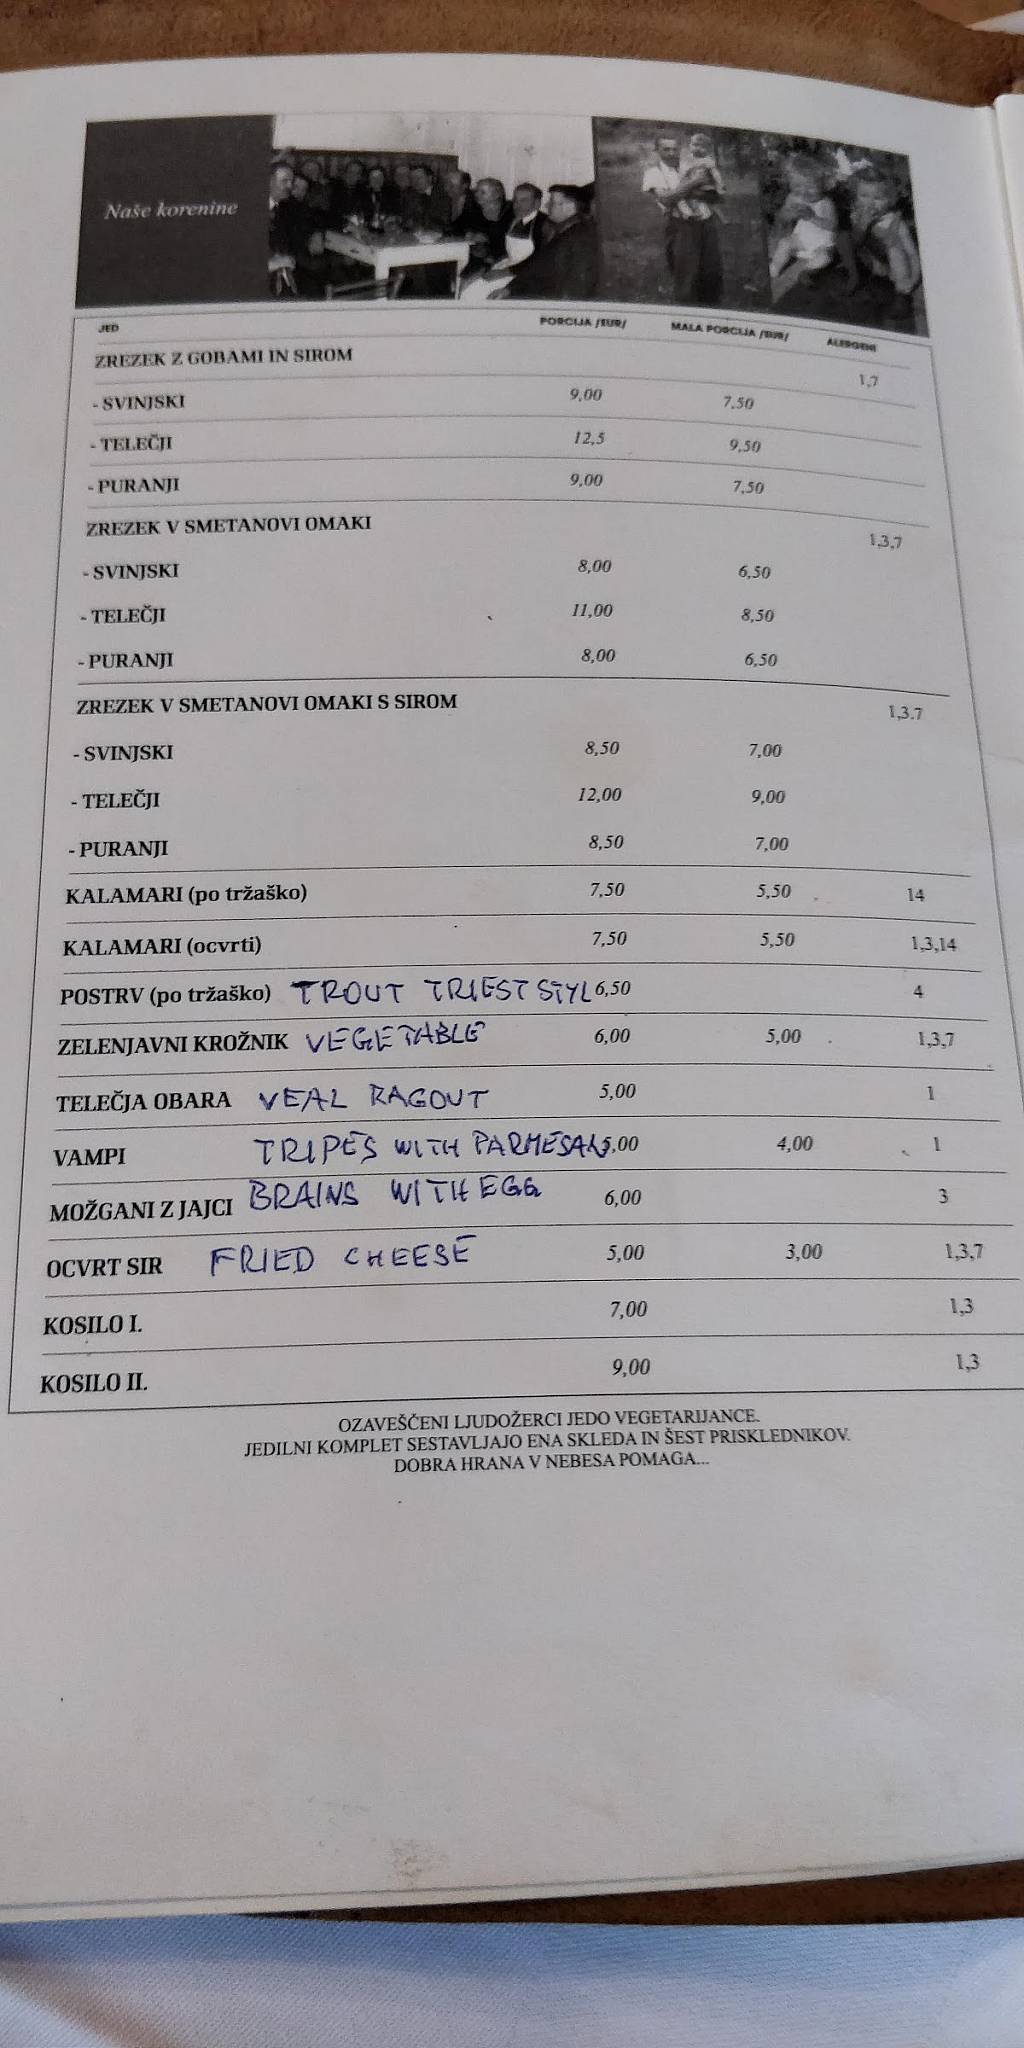 Naše korenine
JED PORCIJA /EUR/ MALA PORCIJA /EUR/ ALERGENI
ZREZEK Z GOBAMI IN SIROM 1,7
- SVINJSKI 9,00 7,50
- TELEČJI 12,5 9,50
- PURANJI 9,00 7,50
ZREZEK V SMETANOVI OMAKI 1,3,7
- SVINJSKI 8,00 6,50
- TELEČJI 11,00 8,50
- PURANJI 8,00 6,50
ZREZEK V SMETANOVI OMAKI S SIROM 1,3.7
- SVINJSKI 8,50 7,00
- TELEČJI 12,00 9,00
- PURANJI 8,50 7,00
KALAMARI (po tržaško) 7,50 5,50 14
KALAMARI (ocvrti) 7,50 5,50 1,3,14
POSTRV (po tržaško) TROUT TRIEST STYL 6,50 4
ZELENJAVNI KROŽNIK VEGETABLE 6,00 5,00 1,3,7
TELEČJA OBARA VEAL RAGOUT 5,00 1
VAMPI TRIPES WITH PARMESAN 5,00 4,00 1
MOŽGANI Z JAJCI BRAINS WITH EGG 6,00 3
OCVRT SIR FRIED CHEESE 5,00 3,00 1,3,7
KOSILO I. 7,00 1,3
KOSILO II. 9,00 1,3
OZAVEŠČENI LJUDOŽERCI JEDO VEGETARIJANCE.
JEDILNI KOMPLET SESTAVLJAJO ENA SKLEDA IN ŠEST PRISKLEDNIKOV.
DOBRA HRANA V NEBESA POMAGA...